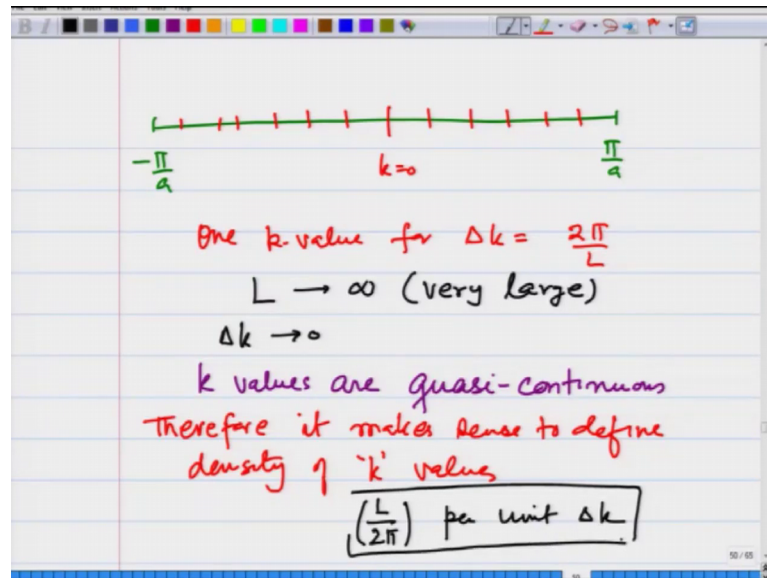 -π/a k=0 π/a
One k-value for Δk = 2π/L
L → ∞ (very large)
Δk → 0
k values are quasi-continuous
Therefore it makes sense to define
density of 'k' values
(L/2π) per unit Δk
50 / 65